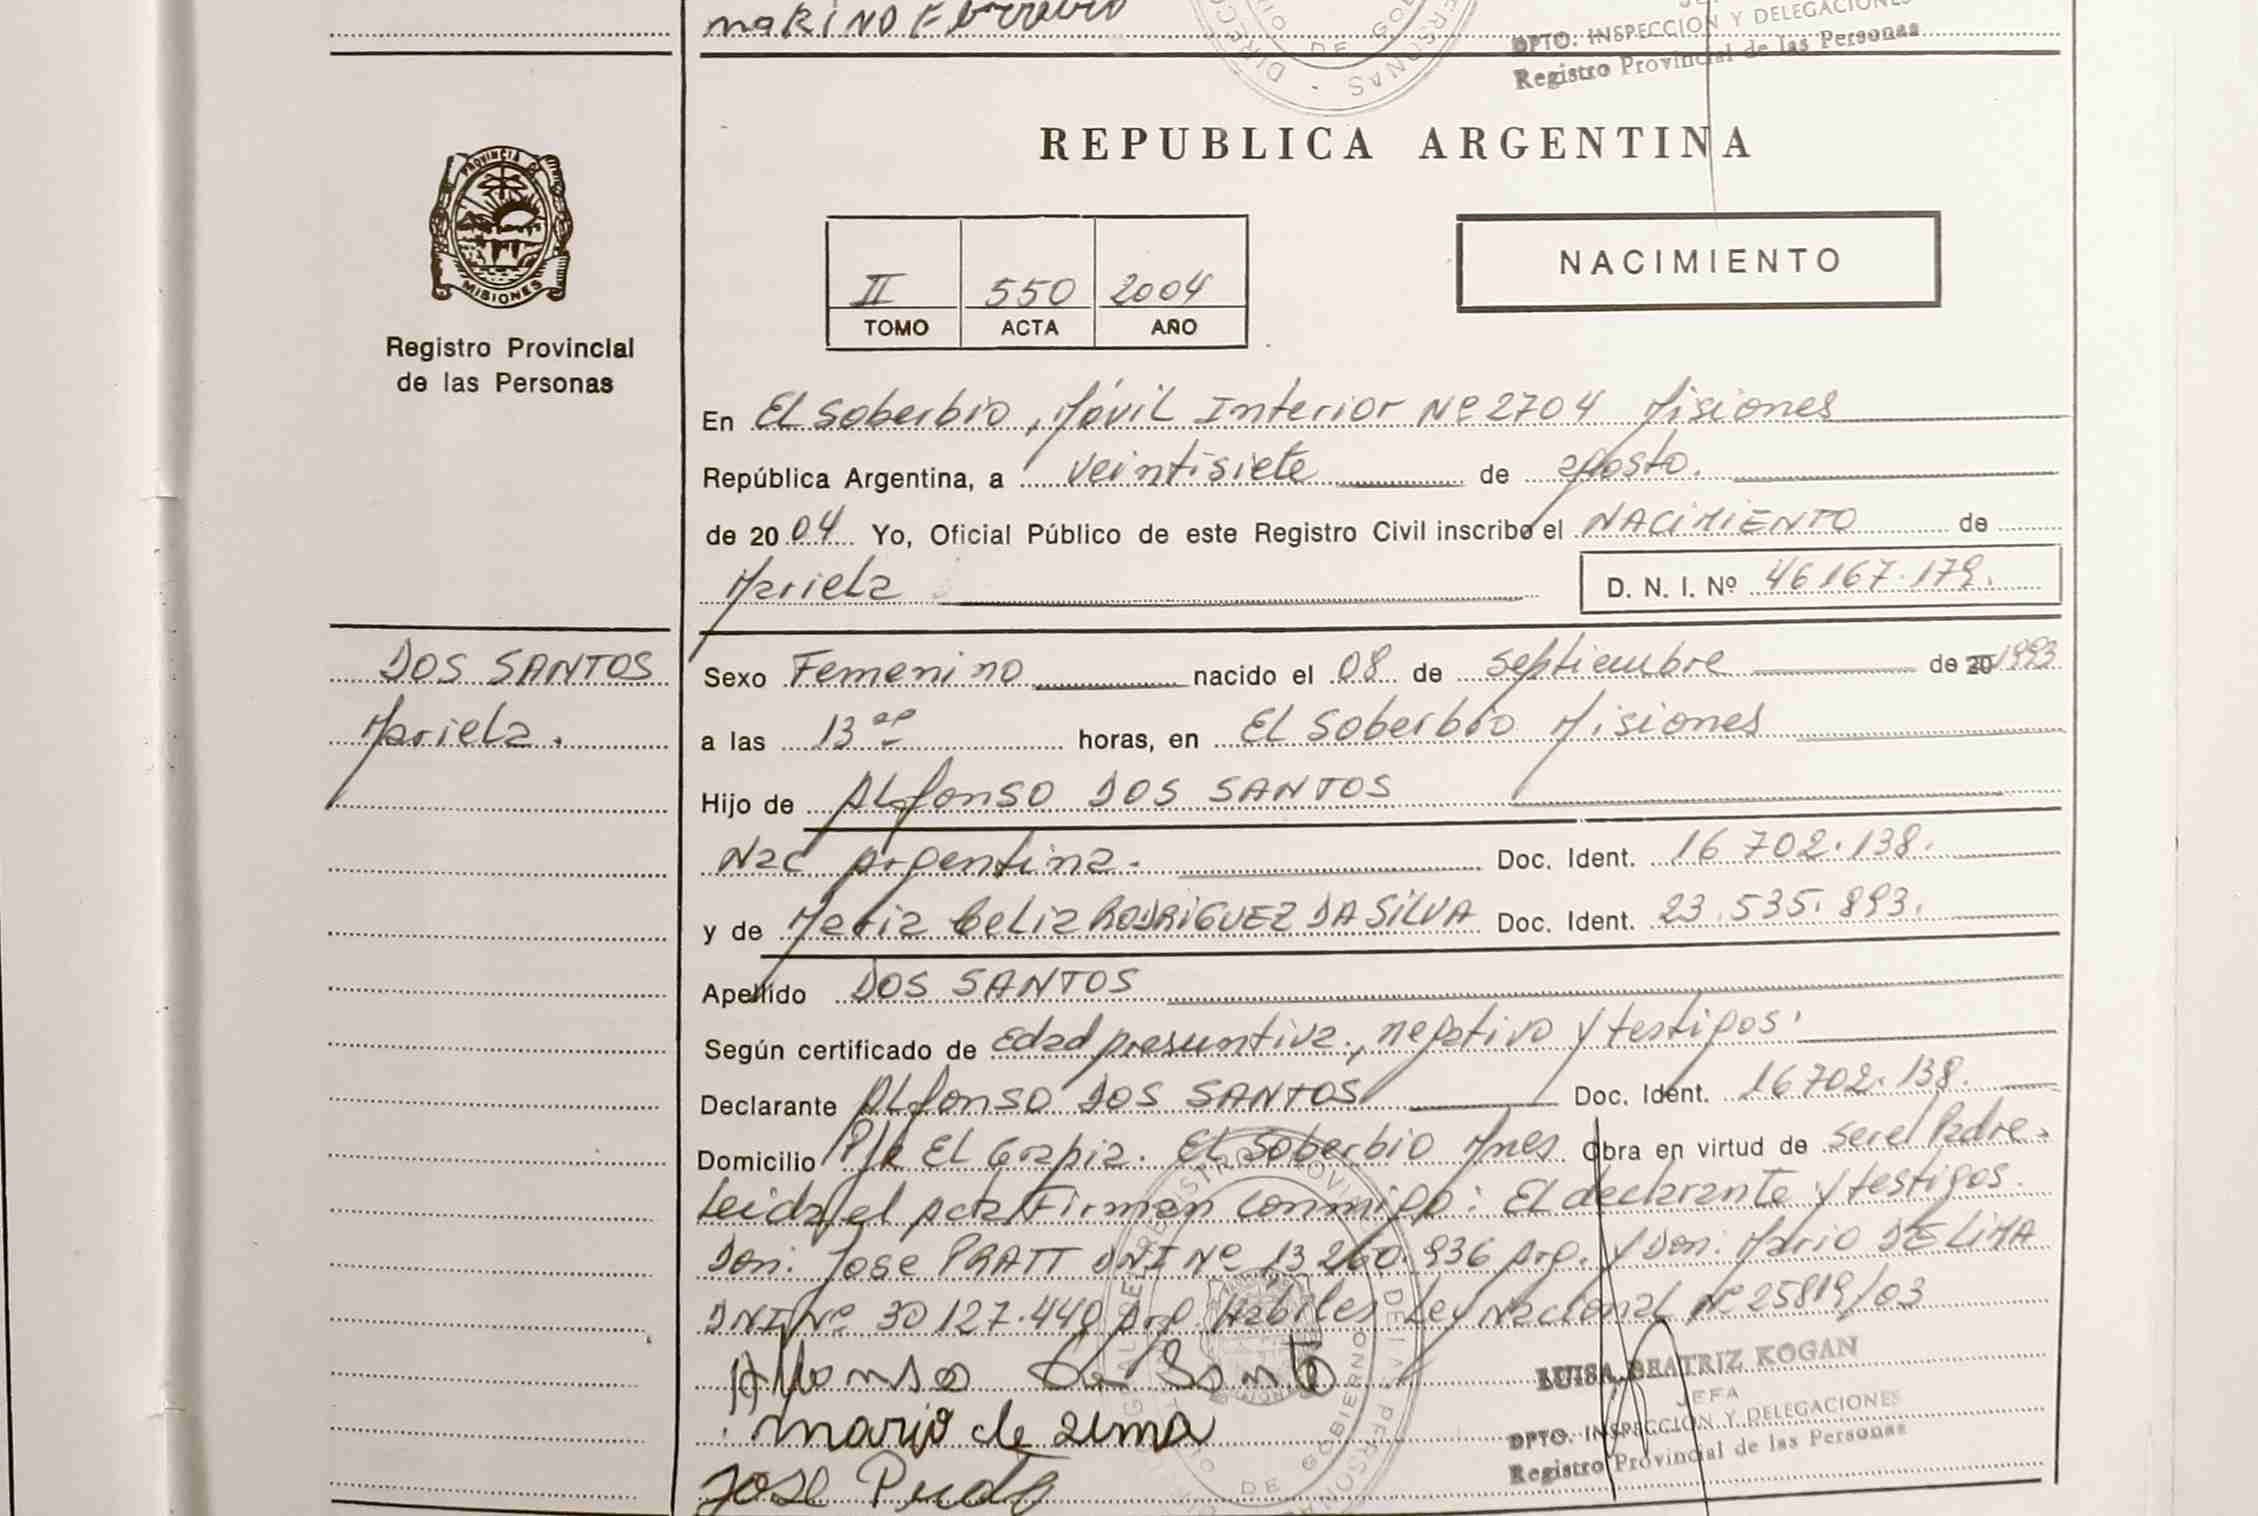 marino Ferreira
DPTO. INSPECCION Y DELEGACIONES
Registro Provincial de las Personas
PROVINCIA DE
MISIONES
Registro Provincial
de las Personas
REPUBLICA ARGENTINA
II 550 2004
TOMO ACTA AÑO
NACIMIENTO
En El Soberbio, Móvil Interior Nº 2704 Misiones
República Argentina, a veintisiete de agosto.
de 2004 Yo, Oficial Público de este Registro Civil inscribo el NACIMIENTO de
Mariela D. N. I. Nº 46167.179.
DOS SANTOS
Mariela.
Sexo Femenino nacido el 08 de septiembre de 20 1993
a las 13 horas, en El Soberbio Misiones
Hijo de Alfonso DOS SANTOS
Nac argentina. Doc. Ident. 16 702.138.
y de Maria Celia RODRIGUEZ DA SILVA Doc. Ident. 23.535.893.
Apellido DOS SANTOS
Según certificado de Edad presuntiva, negativo y testigos.
Declarante Alfonso DOS SANTOS Doc. Ident. 16702.138.
Domicilio Pje El Grapia. El Soberbio Mnes Obra en virtud de ser el Padre.
Leida el acta Firman conmigo: El declarante y testigos
Don: Jose PRATT DNI Nº 13 260.936 arg. y Don: Mario DE LIMA
DNI Nº 30 127.440 arg. Hábiles Ley Nacional Nº 25819/03
Alfonso
mario de Lima
Jose
LUISA BEATRIZ KOGAN
JEFA
DPTO. INSPECCION Y DELEGACIONES
Registro Provincial de las Personas